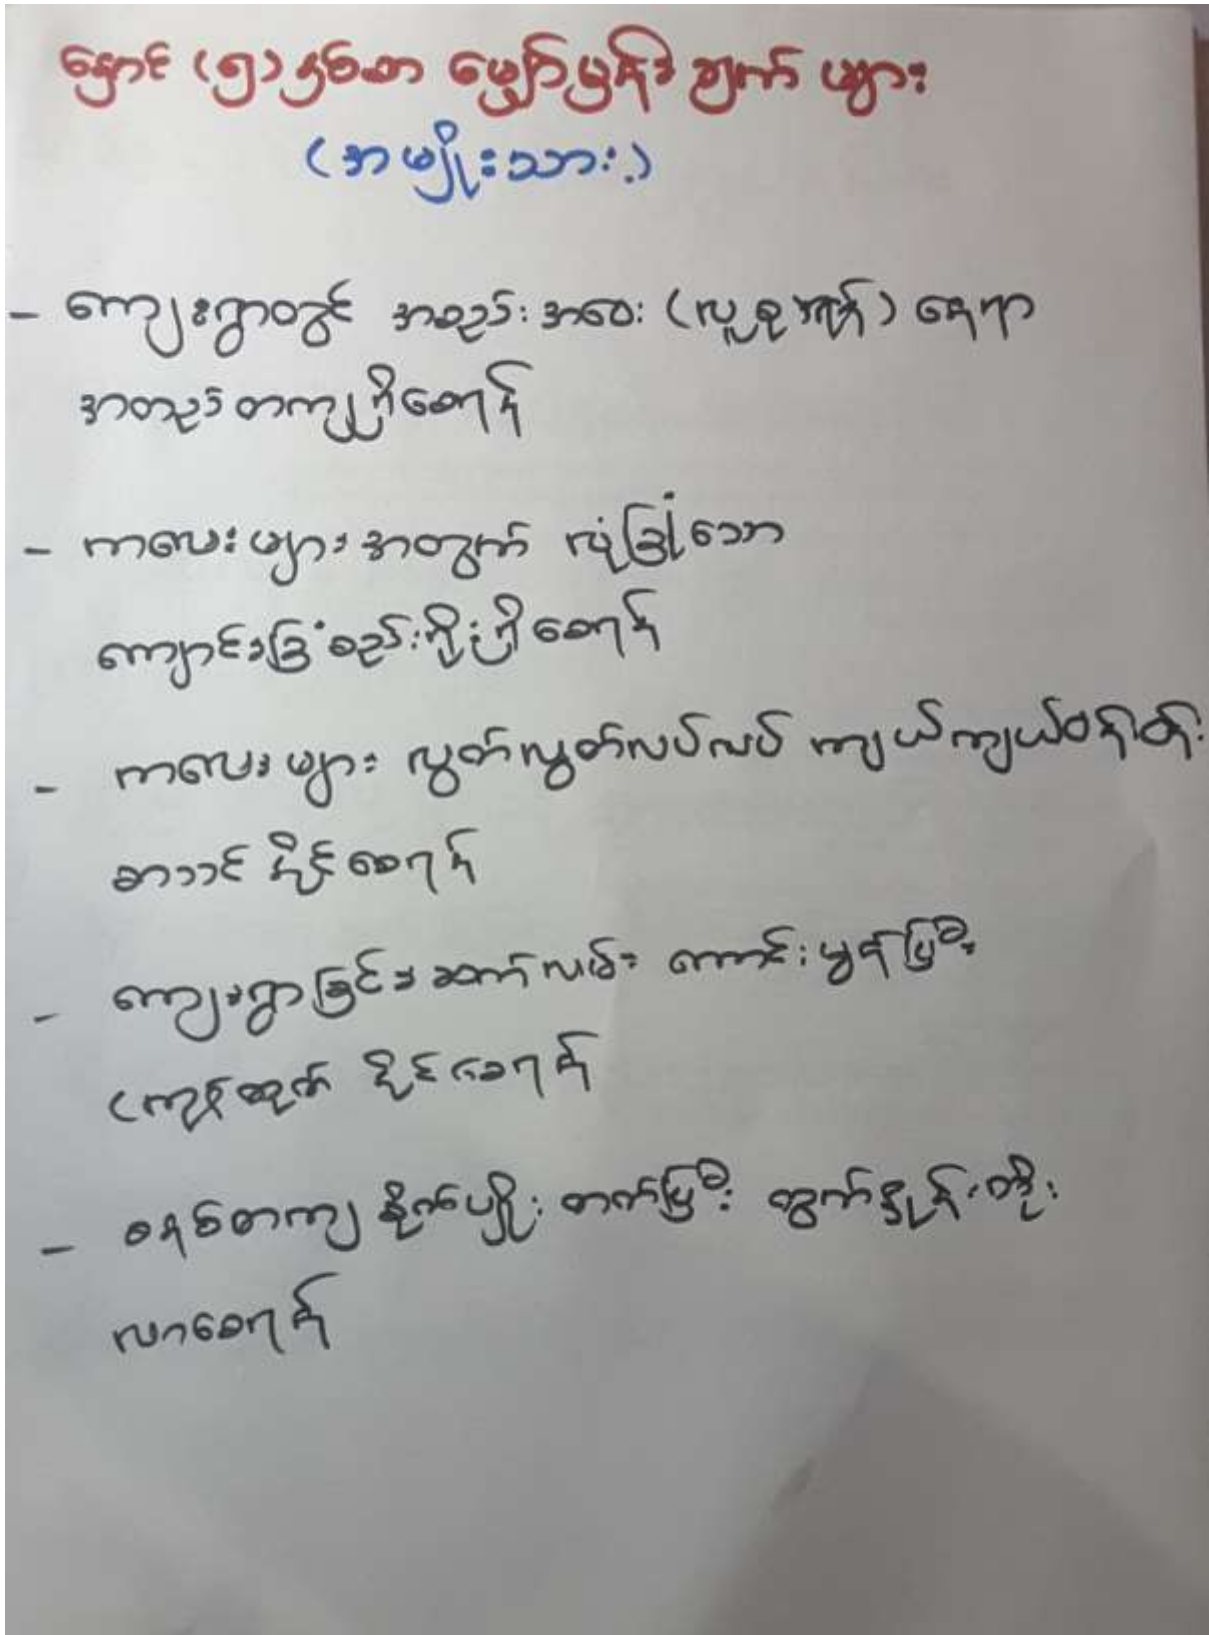 နှောင် (၅) နှစ်စာ မျှော်မှန်းချက် များ
(အမျိုးသား)
- ကျေးရွာတွင် အစည်းအဝေး (လူစုရုံး) နေရာ
အတည်တကျရှိစေရန်
- ကလေးများအတွက် လုံခြုံသော
ကျောင်းခြံစည်းရိုးရှိစေရန်
- ကလေးများ လွတ်လွတ်လပ်လပ် ကျယ်ကျယ်ဝန်းဝန်း
စာသင်နိုင်စေရန်
- ကျေးရွာခြင်းဆက်လမ်း ကောင်းမွန်ပြီး
ကုန်ထုတ် နိုင်စေရန်
- စနစ်တကျ စိုက်ပျိုးတတ်ပြီး ထွက်နှုန်းတိုး
လာစေရန်